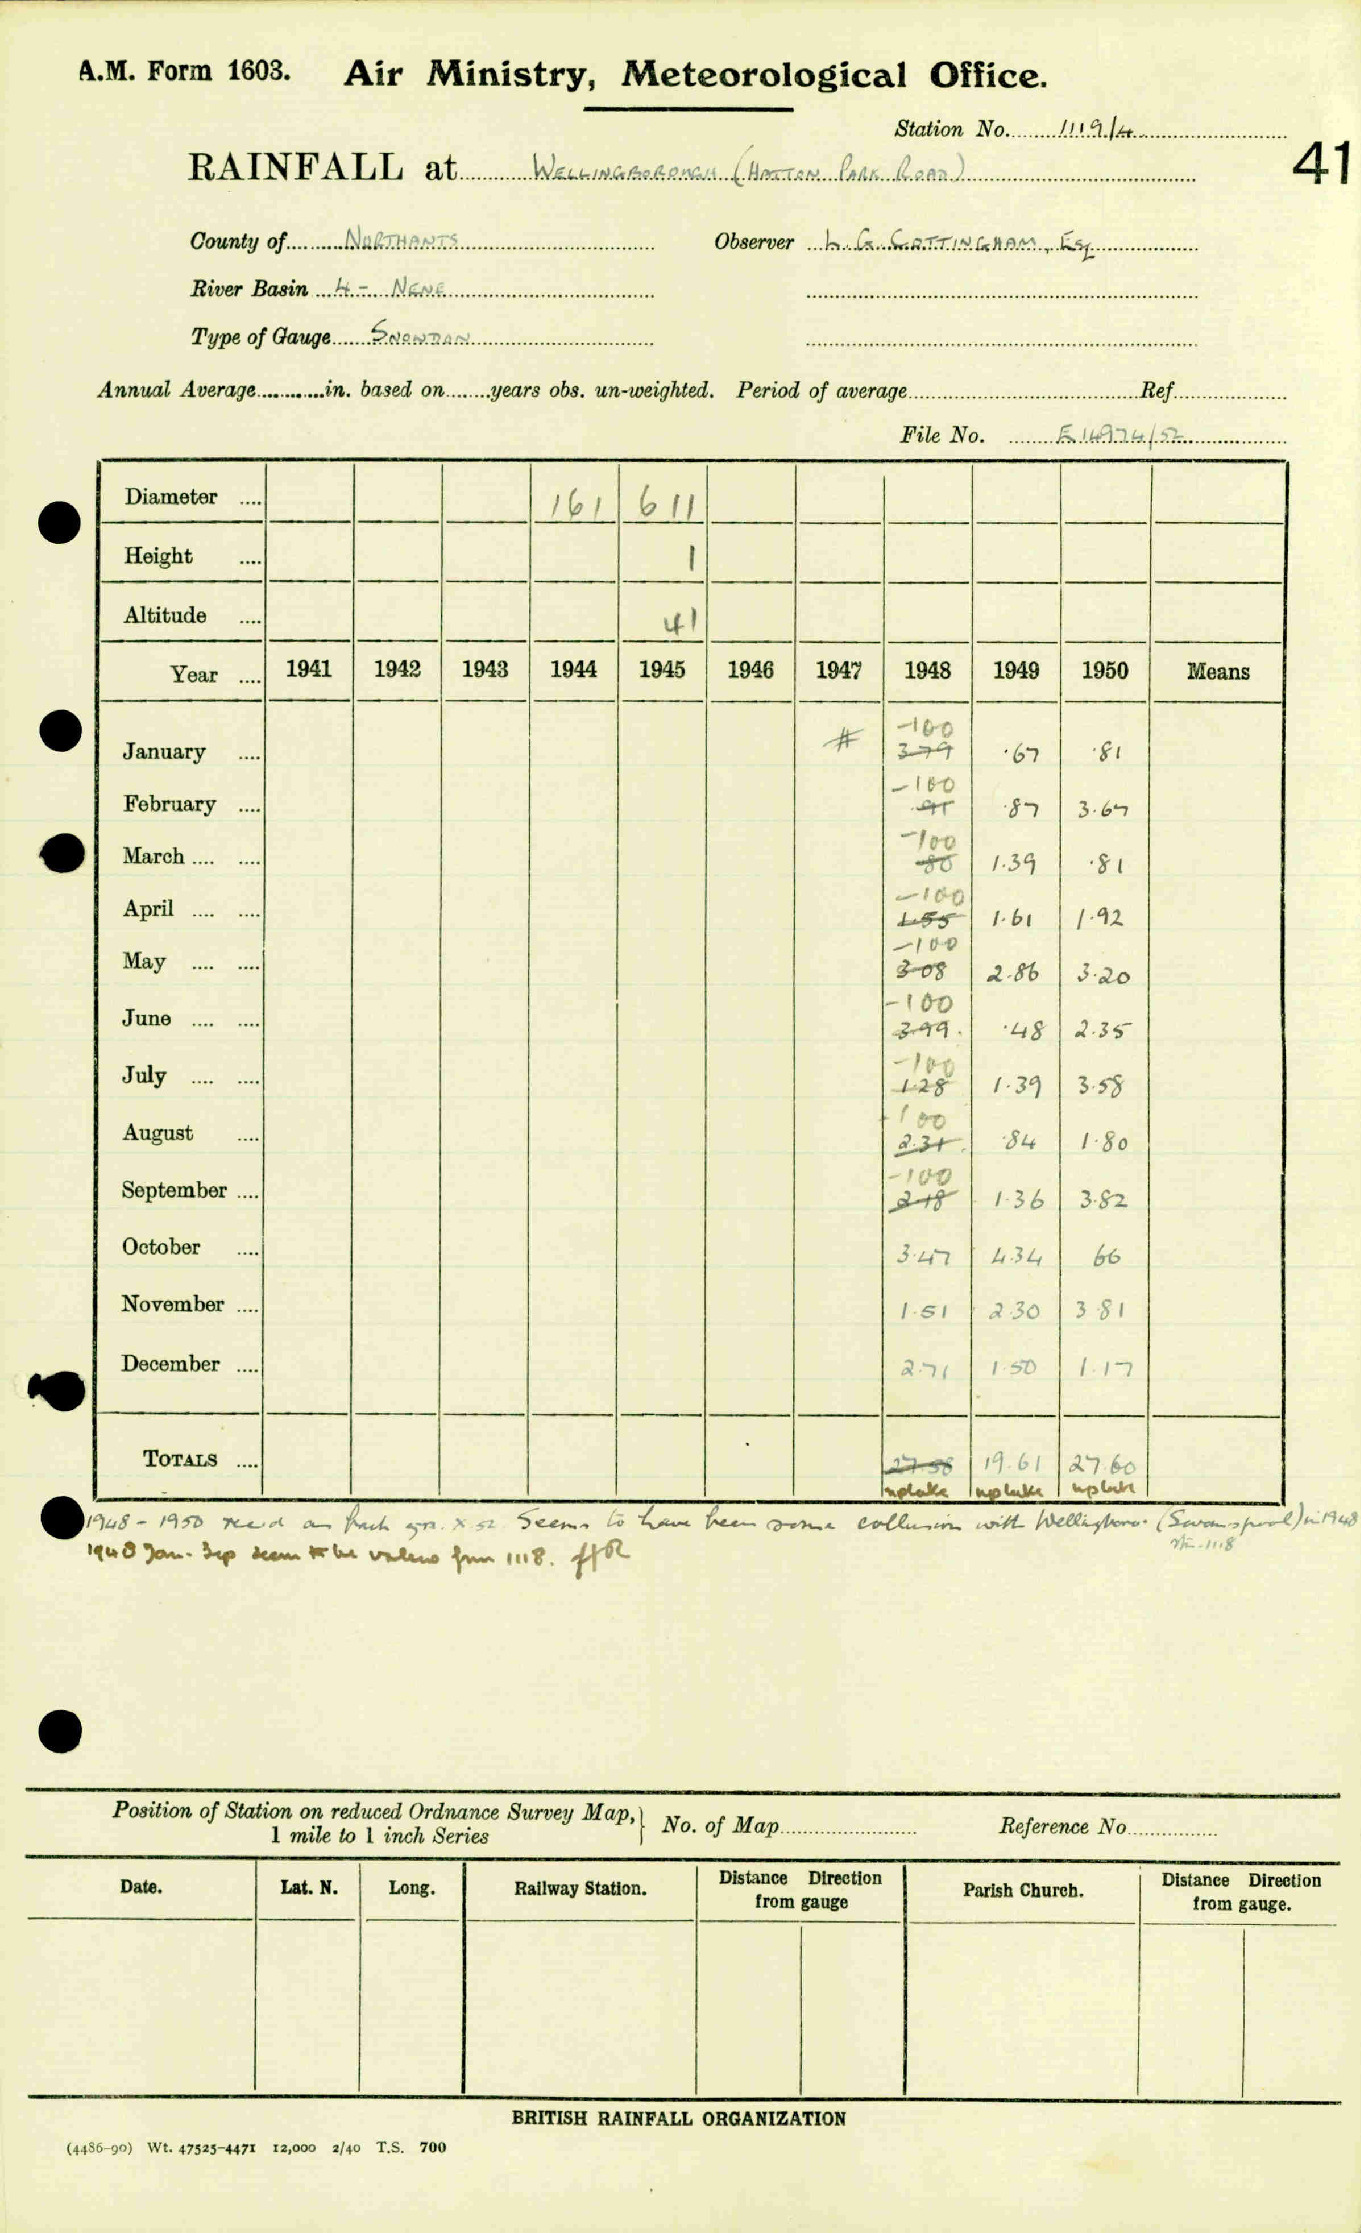 A.M. Form 1603. Air Ministry, Meteorological Office.
Station No. 1119/4
41
RAINFALL at WELLINGBOROUGH (HATTON PARK ROAD)
County of NORTHANTS Observer L. G. COTTINGHAM, Esq
River Basin 4 - NENE
Type of Gauge SNOWDON
Annual Average in. based on years obs. un-weighted. Period of average Ref.
File No. E 14974/52
Diameter 161 611
Height 1
Altitude 41
Year 1941 1942 1943 1944 1945 1946 1947 1948 1949 1950 Means
-100
January # 3.79 .67 .81
-100
February .91 .87 3.67
-100
March .80 1.39 .81
-100
April 1.55 1.61 1.92
-100
May 3.08 2.86 3.20
-100
June 3.99 .48 2.35
-100
July 1.28 1.39 3.58
-100
August 2.31 .84 1.80
-100
September 2.18 1.36 3.82
October 3.47 4.34 66
November 1.51 2.30 3.81
December 2.71 1.50 1.17
TOTALS 27.58 19.61 27.60
1948 - 1950 rec'd as back yrs. X 52 Seems to have been some collusion with Wellingboro' (Swanspool) in 1948
1118
1948 Jan - Sep seem to be values from 1118.
Position of Station on reduced Ordnance Survey Map, 1 mile to 1 inch Series } No. of Map Reference No.
Date. Lat. N. Long. Railway Station. Distance Direction from gauge Parish Church. Distance Direction from gauge.
BRITISH RAINFALL ORGANIZATION
(4486-90) Wt. 47525-4471 12,000 2/40 T.S. 700